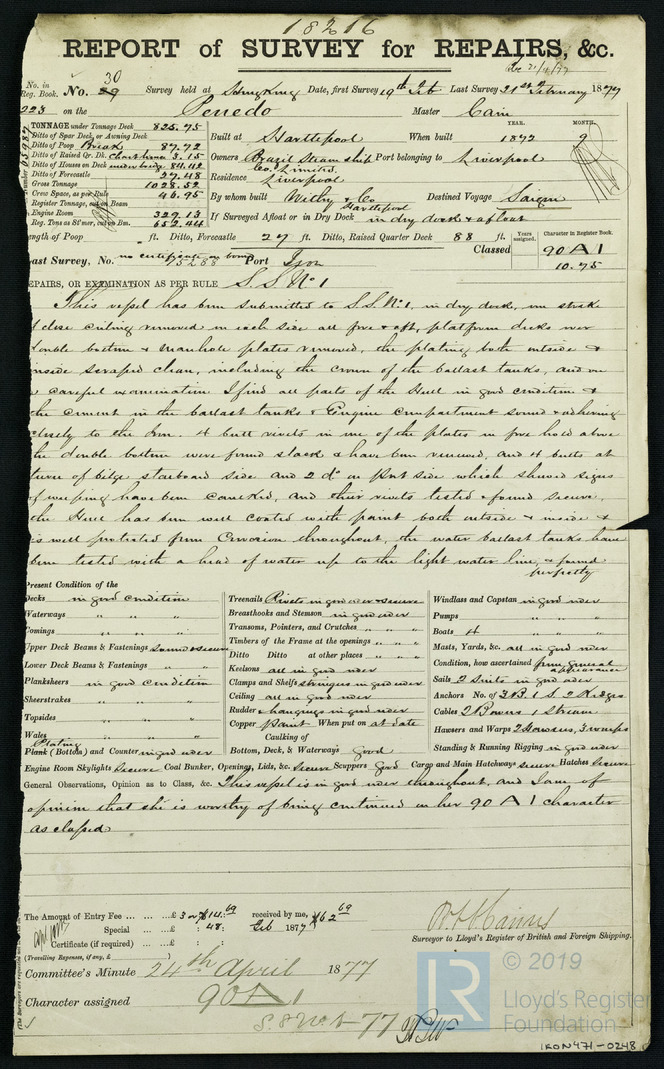 18216
REPORT of SURVEY for REPAIRS, &c.
No. in Reg. Book. No. 30 Survey held at Hong Kong Date, first Survey 19th Feb Last Survey 21st February 1877
223 on the Penedo Master Cain
TONNAGE under Tonnage Deck 825.75
Ditto of Spar Deck, or Awning Deck
Ditto of Poop Break 87.72
Ditto of Raised Qr. Dk. Chart house 3.15
Ditto of Houses on Deck under bridge 84.42
Ditto of Forecastle 27.48
Gross Tonnage 1028.52
Crew Space, as per Rule 46.95
Register Tonnage, cut on Beam
Engine Room 329.13
Reg. Tons as St'mer, cut on Bm. 652.44
YEAR. MONTH.
Built at Hartlepool When built 1872 9
Owners Brazil Steam ship Co. Limited Port belonging to Liverpool
Residence Liverpool
By whom built Withy & Co Hartlepool Destined Voyage Saigon
If Surveyed Afloat or in Dry Dock in dry dock & afloat
ength of Poop ft. Ditto, Forecastle 27 ft. Ditto, Raised Quarter Deck 88 ft.
Years assigned. Character in Register Book.
Classed 90 A 1
10.75
ast Survey, No. no certificate on board 75288 Port Iron
EPAIRS, OR EXAMINATION AS PER RULE S.S. No 1
This vessel has been submitted to S.S. No 1, in dry dock, one strake
of close ceiling removed in each side all fore & aft, platform decks over
double bottom & manhole plates removed, the plating both outside &
inside scraped clean, including the crown of the ballast tanks, and on
a careful examination I find all parts of the Hull in good condition &
the cement in the ballast tanks & Engine compartment sound & adhering
closely to the Iron. 4 butt rivets in one of the plates in fore hold above
the double bottom were found slack & have been renewed, and 4 butts at
turn of bilge starboard side and 2 do on port side which showed signs
of weeping have been caulked, and their rivets tested & found secure.
the Hull has been well coated with paint both outside & inside &
is well protected from Corrosion throughout, the water ballast tanks have
been tested with a head of water up to the light water line, & found
perfectly
Present Condition of the
Decks in good condition
Waterways " " "
Comings " " "
Upper Deck Beams & Fastenings sound & secure
Lower Deck Beams & Fastenings " "
Planksheers in good condition
Sheerstrakes " " "
Topsides " " "
Wales " " "
Plating
Plank (Bottom) and Counter in good order
Treenails Rivets in good order & secure
Breasthooks and Stemson in good order
Transoms, Pointers, and Crutches " " "
Timbers of the Frame at the openings " " "
Ditto Ditto at other places " "
Keelsons all in good order
Clamps and Shelfs stringers in good order
Ceiling all in good order
Rudder & hangings in good order
Copper paint When put on at date
Caulking of
Bottom, Deck, & Waterways good
Windlass and Capstan in good order
Pumps " " "
Boats 4 " " "
Masts, Yards, &c. all in good order
Condition, how ascertained from general appearance
Sails 2 Suits in good order
Anchors No. of 3 B. 1 S. 2 Kedges
Cables 2 Bowers 1 Stream
Hawsers and Warps 2 Hawsers, 3 warps
Standing & Running Rigging in good order
Engine Room Skylights Secure Coal Bunker, Openings, Lids, &c. secure Scuppers good Cargo and Main Hatchways secure Hatches secure
General Observations, Opinion as to Class, &c. This vessel is in good order throughout, and I am of
opinion that she is worthy of being continued in her 90 A 1 character
as classed
The Amount of Entry Fee £ received by me,
Special £ : 48: Feb 1877
Certificate (if required)
(Travelling Expenses, if any, £
Surveyor to Lloyd's Register of British and Foreign Shipping.
Committee's Minute 24th April 1877
Character assigned 90 A 1
S.S No 1-77
© 2019
LR
Lloyd's Register
Foundation
IRON471-0248